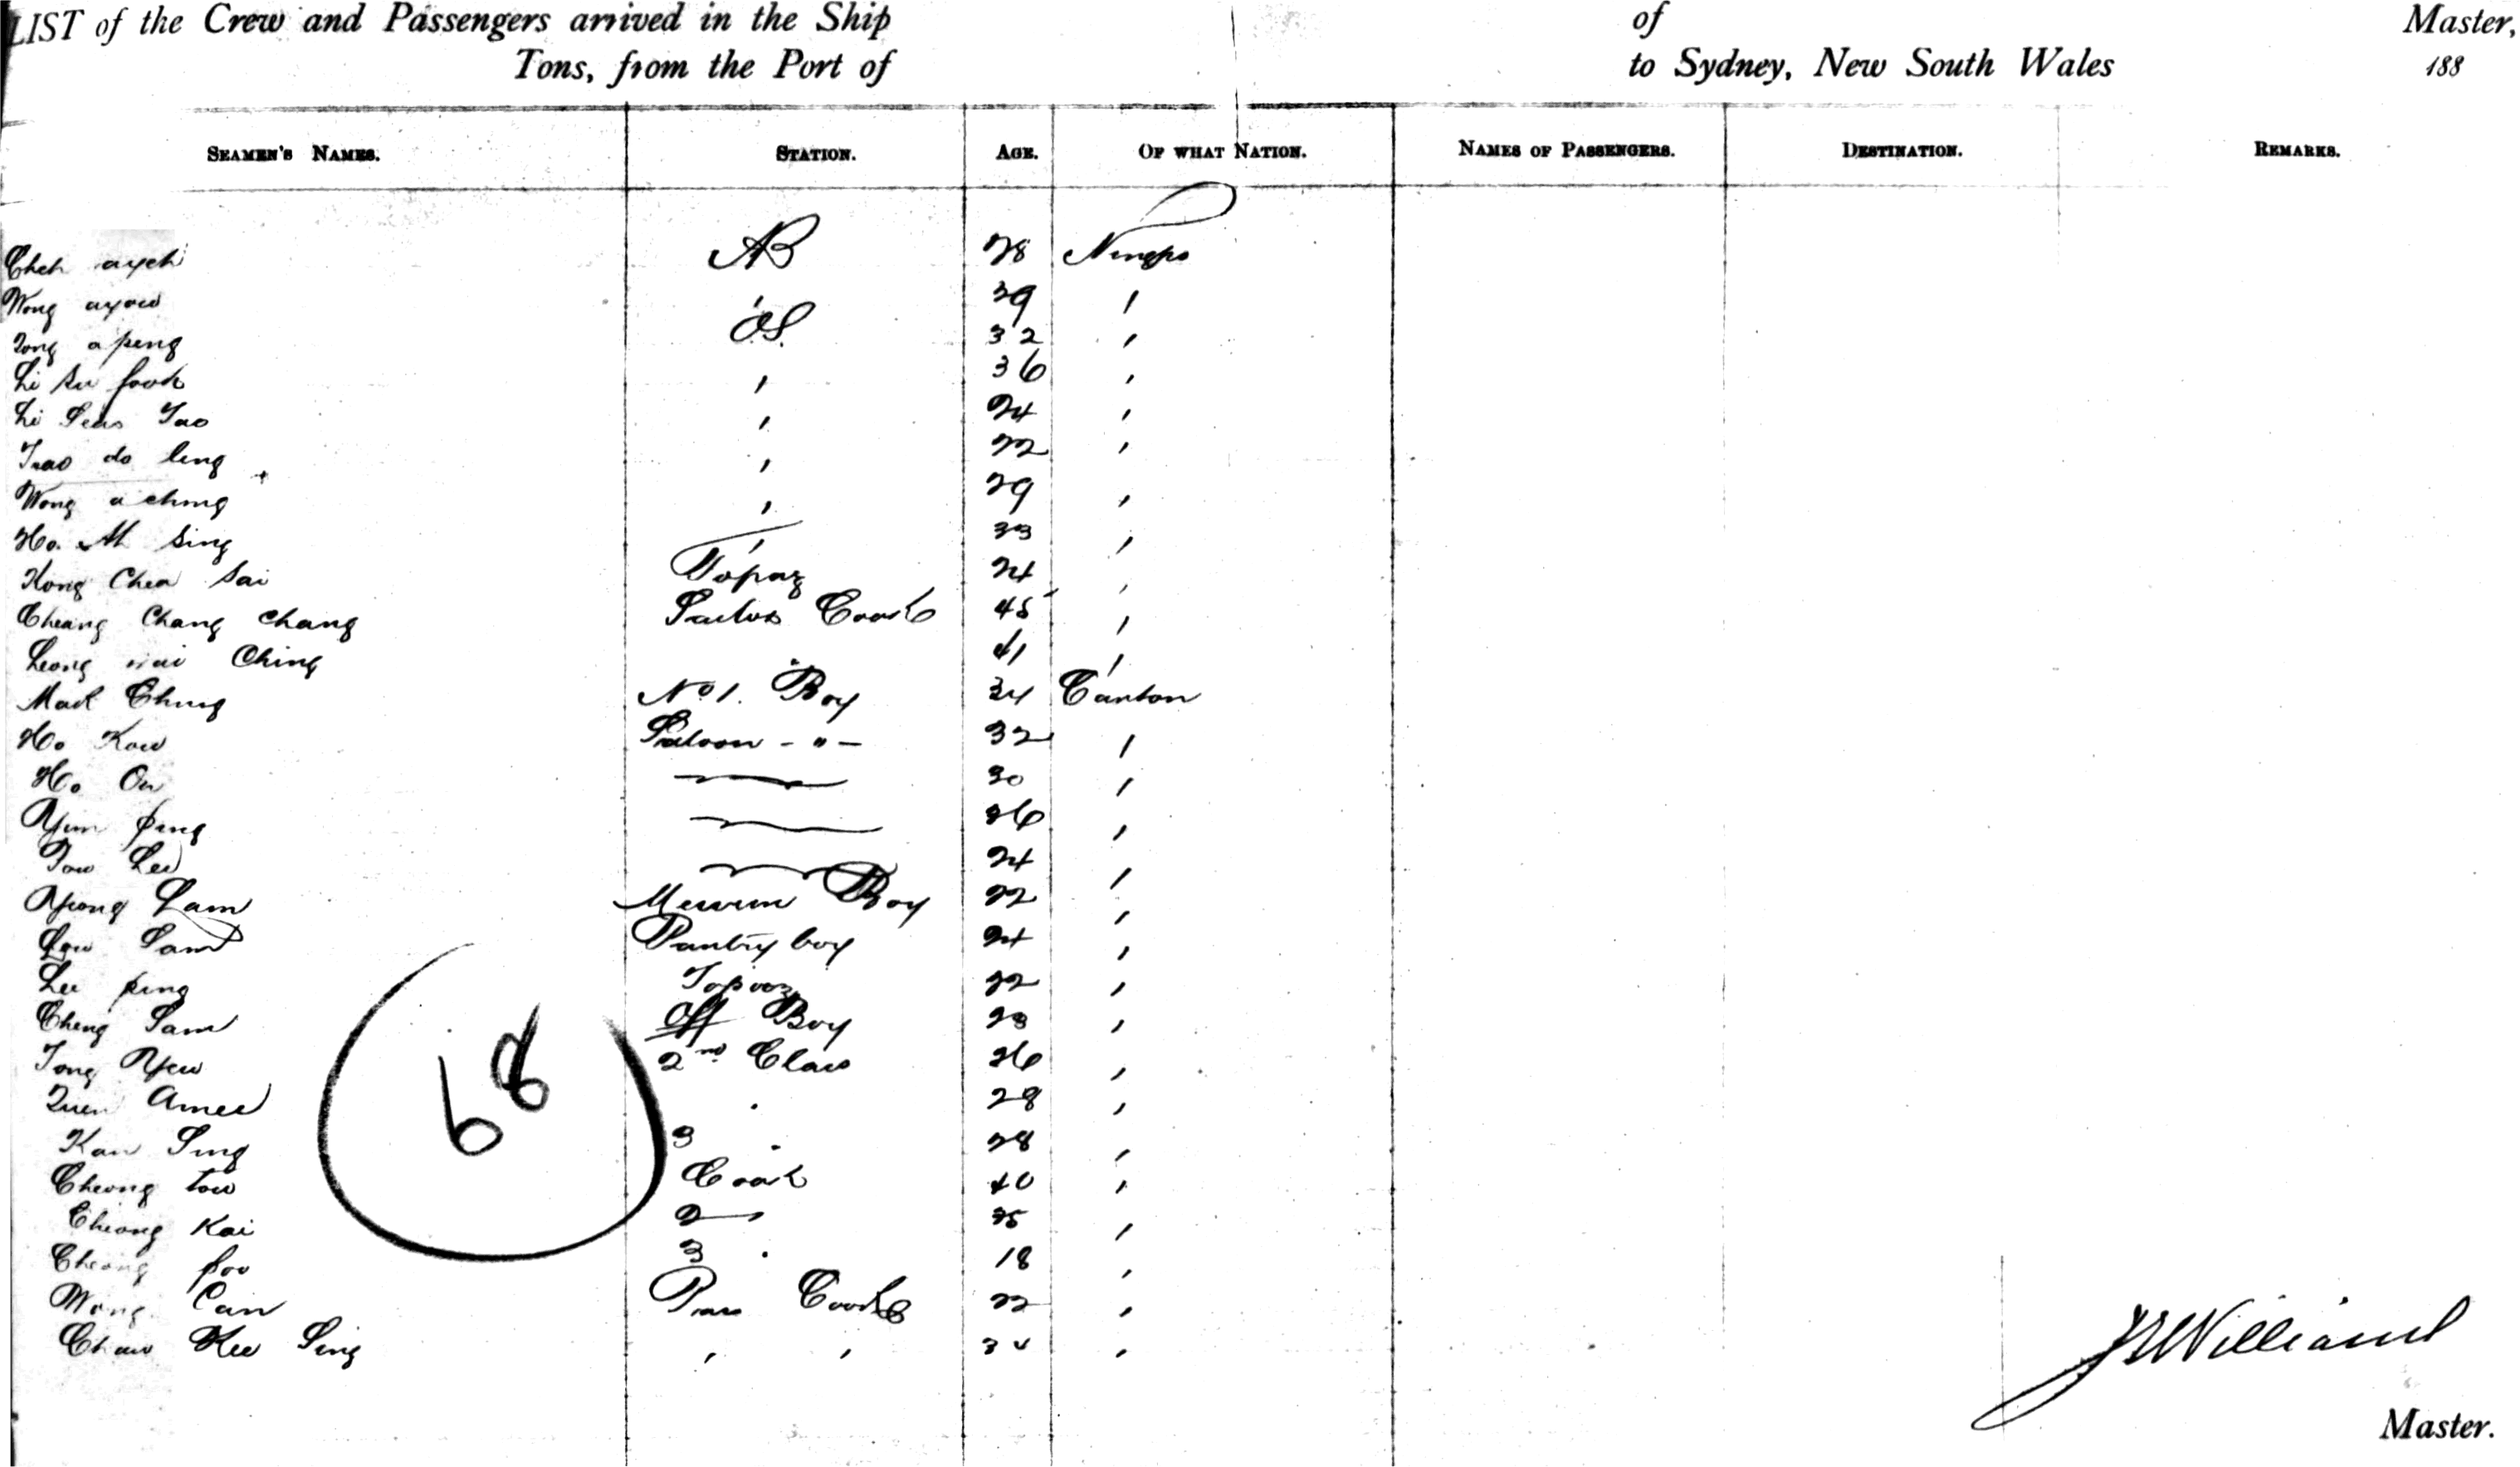 LIST of the Crew and Passengers arrived in the Ship of Master,
Tons, from the Port of to Sydney, New South Wales 188
SEAMEN'S NAMES. STATION. AGE. OF WHAT NATION. NAMES OF PASSENGERS. DESTINATION. REMARKS.
Cheh ayeh AB 28 Ningpo
Wong ayow ' 29 '
Tong apeng OS. 32 '
Li su fook ' 36 '
Li Seas Tao ' 24 '
Tsao do ling ' 22 '
Wong a ching ' 29 '
Ho. Ah sing ' 33 '
Kong Chea Sai Topaz 24 '
Cheang Chang Chang Sailors Cook 45 '
Leong wai Ching " 41 '
Mack Chung No 1. Boy 34 Canton
Ho Kow Saloon - " - 32 '
Ho On 30 '
Yum ping 26 '
Tow Lee 24 '
Yeong Lam Messrm Boy 22 '
Low Sam Pantry boy 24 '
Lee ping Topaz 22 '
Cheng Sam Off Boy 23 '
Tong Yew 2nd Class 26 '
Quen Amee . 28 '
Kan Sing 3 . 28 '
Cheong tow Cook 40 '
Cheong Kai 2 25 '
Cheong poo 3 . 18 '
Wong Can Pass Cook 22 '
Chaw Kee Sing ' ' 34 '
68
Williams
Master.